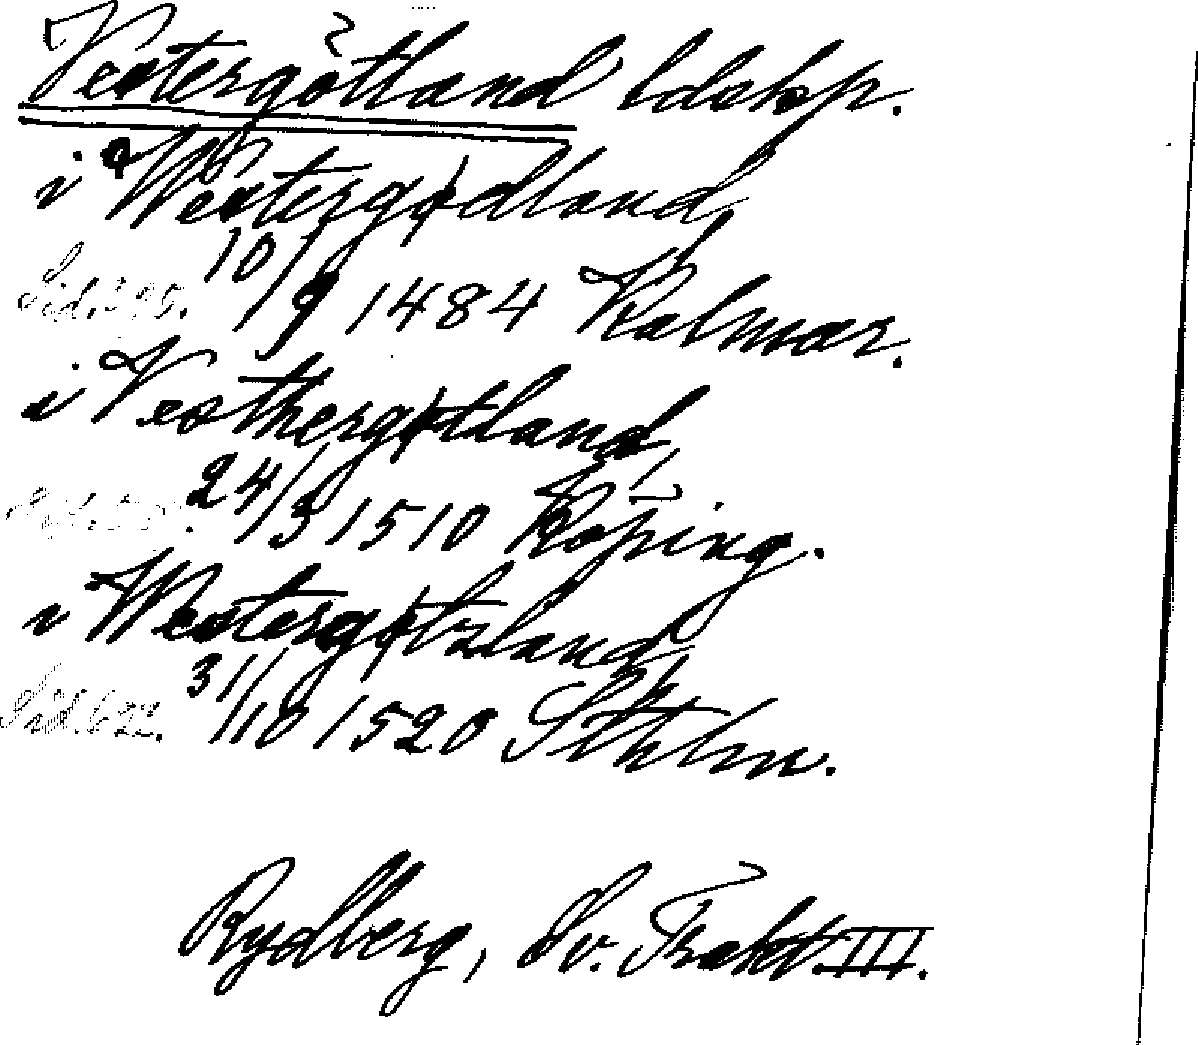 Vestergötland ldskp.
i Westergødland,
Sid. 395. 10/9 1484 Kalmar.
i Vesthergøtland,
24/3 1510 Köping.
i Westergøtzland,
Sid. 622. 31/10 1520 Sthlm.
Rydberg, Sv. Trakt. III.